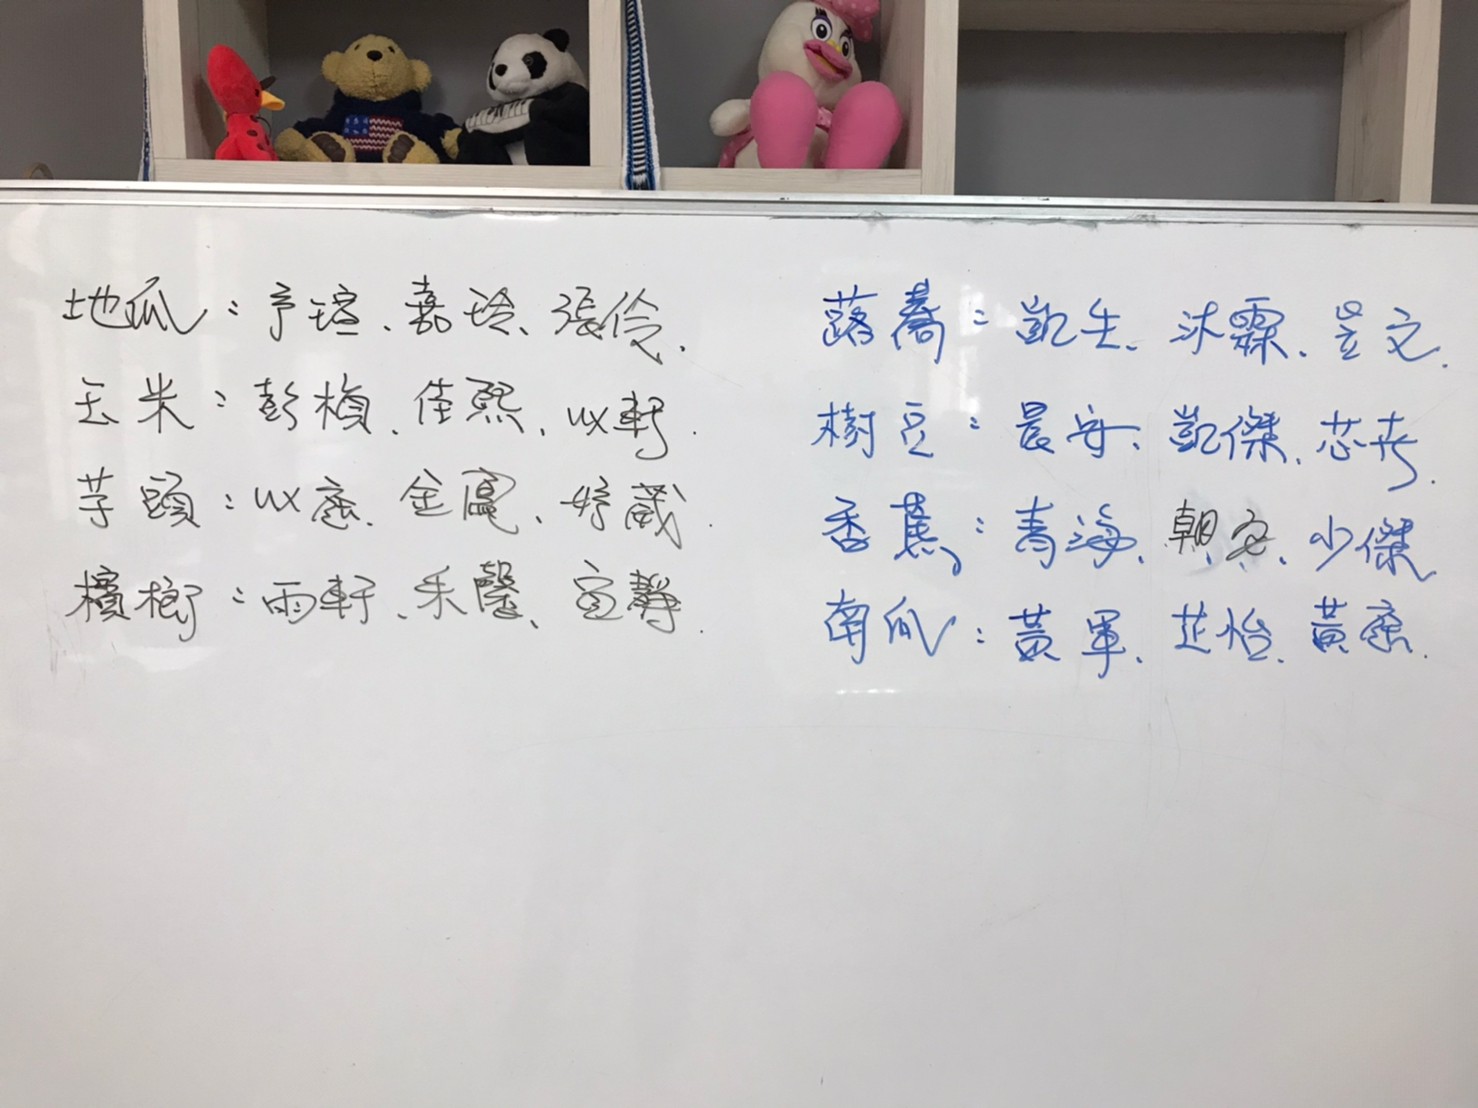 地瓜：予瑄、嘉玲、張伶.
玉米：彭楨、佳熙、以軒.
芋頭：以恩、金鳳、婷葳.
檳榔：雨軒、禾馨、宣靜.
蕗蕎：凱生、沐霖、昱文.
樹豆：晨安、凱傑、芯卉.
香蕉：青海、朝文、少傑
南瓜：黃軍、芷怡、黃恩.